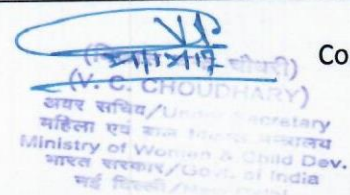 Co
चौधरी)
(V. C. CHOUDHARY)
अवर सचिव/Under Secretary
महिला एवं बाल विकास मंत्रालय
Ministry of Women & Child Dev.
भारत सरकार/Govt. of India
नई दिल्ली/